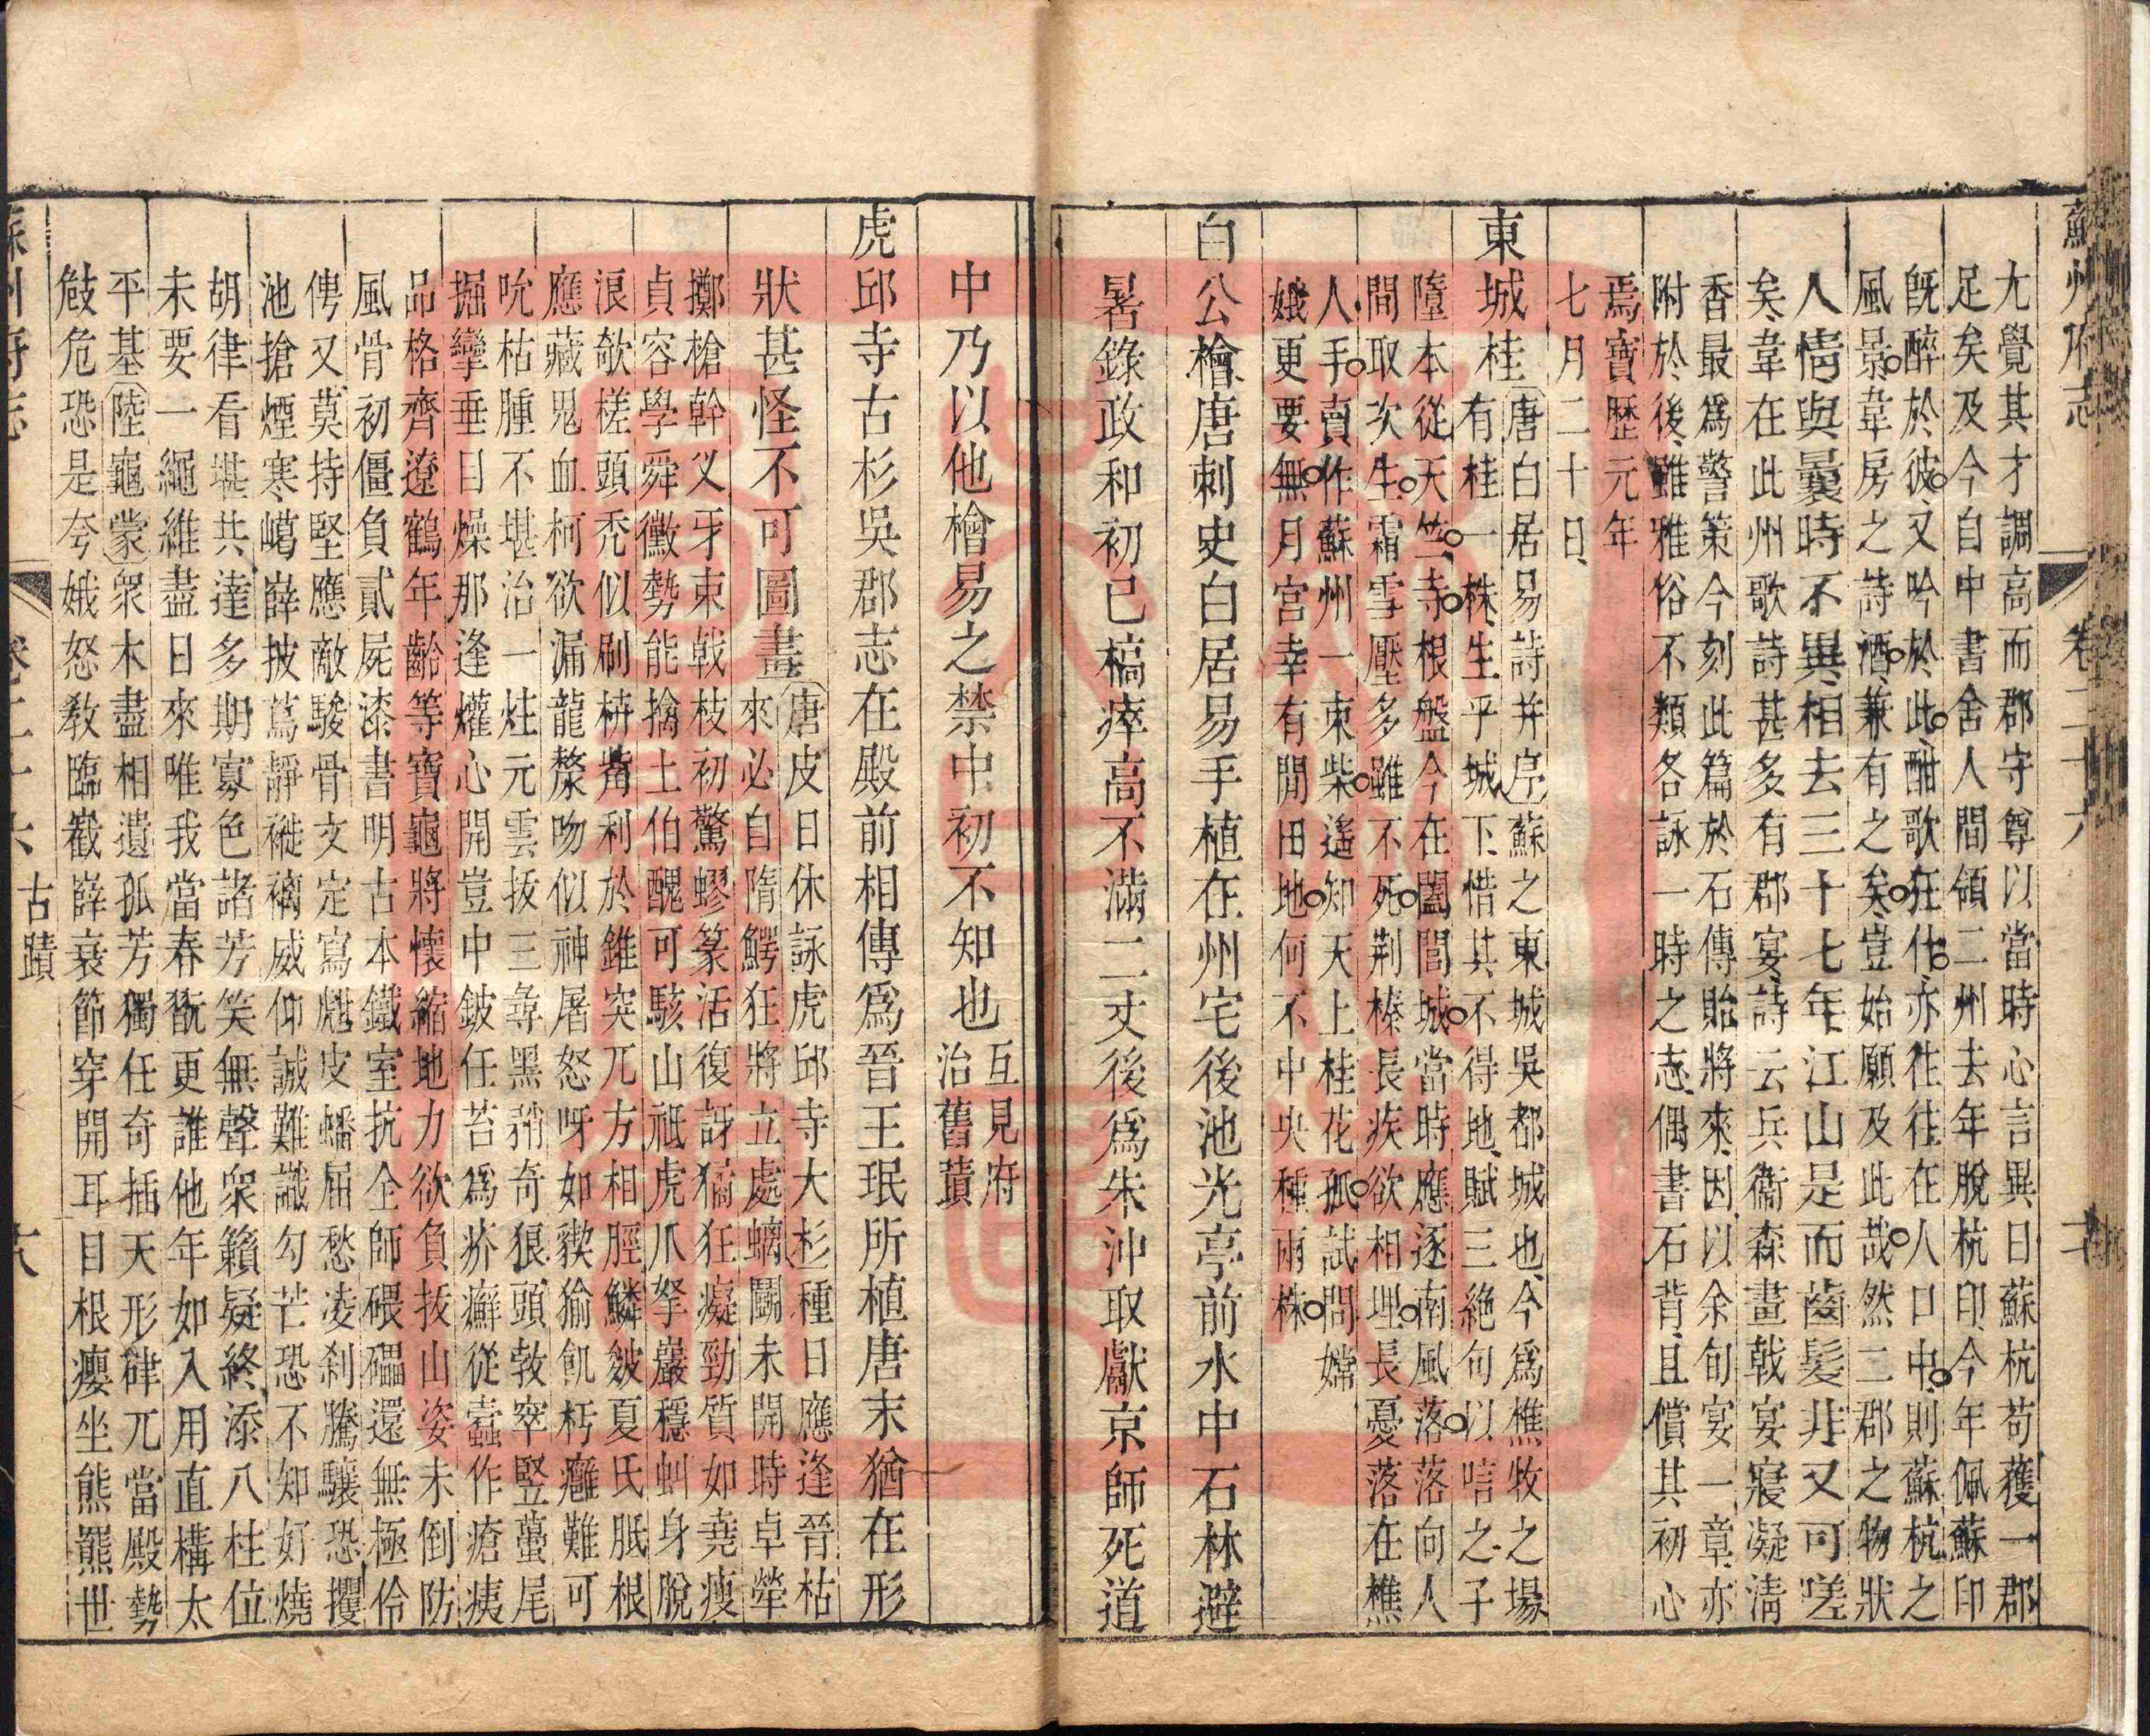 蘇州府志
卷二十六
尢覺其才調高而郡守尊以當時心言異日蘇杭苟獲一郡
足矣及今自中書舍人間領二州去年脫杭印今年佩蘇印
旣醉於彼又吟於此酣歌狂什亦往往在人口中則蘇杭之
風景韋房之詩酒兼有之矣豈始願及此哉然二郡之物狀
人情與曩時不異相去三十七年江山是而齒髮非又可嗟
矣韋在此州歌詩甚多有郡宴詩云兵衞森畫戟宴寢凝清
香最爲警策今刻此篇於石傳貽將來因以余旬宴一章亦
附於後雖雅俗不類各詠一時之志偶書石背且償其初心
焉寶歷元年
七月二十日
東城桂
唐白居易詩并序
蘇之東城吳都城也今爲樵牧之場
有桂一株生乎城下惜其不得地賦三絕句以唁之子
墮本從天竺寺根盤今在闔閭城當時應逐南風落落向人
間取次生霜雪壓多雖不死荆榛長疾欲相埋長憂落在樵
人手賣作蘇州一束柴遙知天上桂花孤試問嫦
娥更要無月宮幸有閒田地何不中央種兩株
白公檜唐刺史白居易手植在州宅後池光亭前水中石林避
暑錄政和初已槁瘁高不滿二丈後爲朱沖取獻京師死道
中乃以他檜易之禁中初不知也
互見府
治舊蹟
虎邱寺古杉吳郡志在殿前相傳爲晉王珉所植唐末猶在形
狀甚怪不可圖畫
唐皮日休詠虎邱寺大杉
種日應逢晉枯
來必自隋鰐狂將立處螭鬭未開時卓犖
擲槍幹义牙束戟枝初驚蟉篆活復訝猘狂癡勁質如堯瘦
貞容學舜黴勢能擒土伯醜可駭山祇虎爪拏巖穩虯身脫
浪欹槎頭秃似刷枿觜利於錐突兀方相脛鱗皴夏氏胝根
應藏鬼血柯欲漏龍漦吻似神屠怒呀如猰㺄飢朽癰難可
吮枯腫不堪治一炷元雲拔三尋黑矟奇狠頭敦窣竪蠆尾
掘攣垂目燥那逢爟心開豈中鈹任苔爲疥癬從蠧作瘡痍
品格齊遼鶴年齡等寶龜將懷縮地力欲負拔山姿未倒防
風骨初僵負貳屍漆書明古本鐵室抗全師碨礧還無極伶
俜又莫持堅應敵駿骨文定寫虺皮蟠屈愁凌刹騰驤恐攫
池搶煙寒嶱嶭披蔦靜褷褵威仰誠難識勾芒恐不知好燒
胡律看堪共達多期寡色諸芳笑無聲衆籟疑終添八柱位
未要一繩維盡日來唯我當春翫更誰他年如入用直構太
平基
陸龜蒙
衆木盡相遺孤芳獨任奇插天形硉兀當殿勢
攲危恐是夸娥怒敎臨巀嶭衰節穿開耳目根癭坐熊羆世
蘇州府志
卷二十六
古蹟